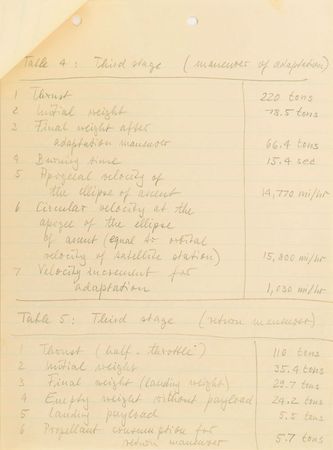 Table 4: Third stage (maneuver of adaptation)
1 Thrust 220 tons
2 Initial weight 78.5 tons
3 Final weight after
adaptation maneuver 66.4 tons
4 Burning time 15.4 sec
5 Apogeal velocity of
the ellipse of ascent 14,770 mi/hr
6 Circular velocity at the
apogee of the ellipse
of ascent (equal to orbital
velocity of satellite station) 15,800 mi/hr
7 Velocity increment for
adaptation 1,030 mi/hr
Table 5: Third stage (return maneuver)
1 Thrust (half-throttle) 110 tons
2 Initial weight 35.4 tons
3 Final weight (landing weight) 29.7 tons
4 Empty weight without payload 24.2 tons
5 Landing payload 5.5 tons
6 Propellant consumption for
return maneuver 5.7 tons